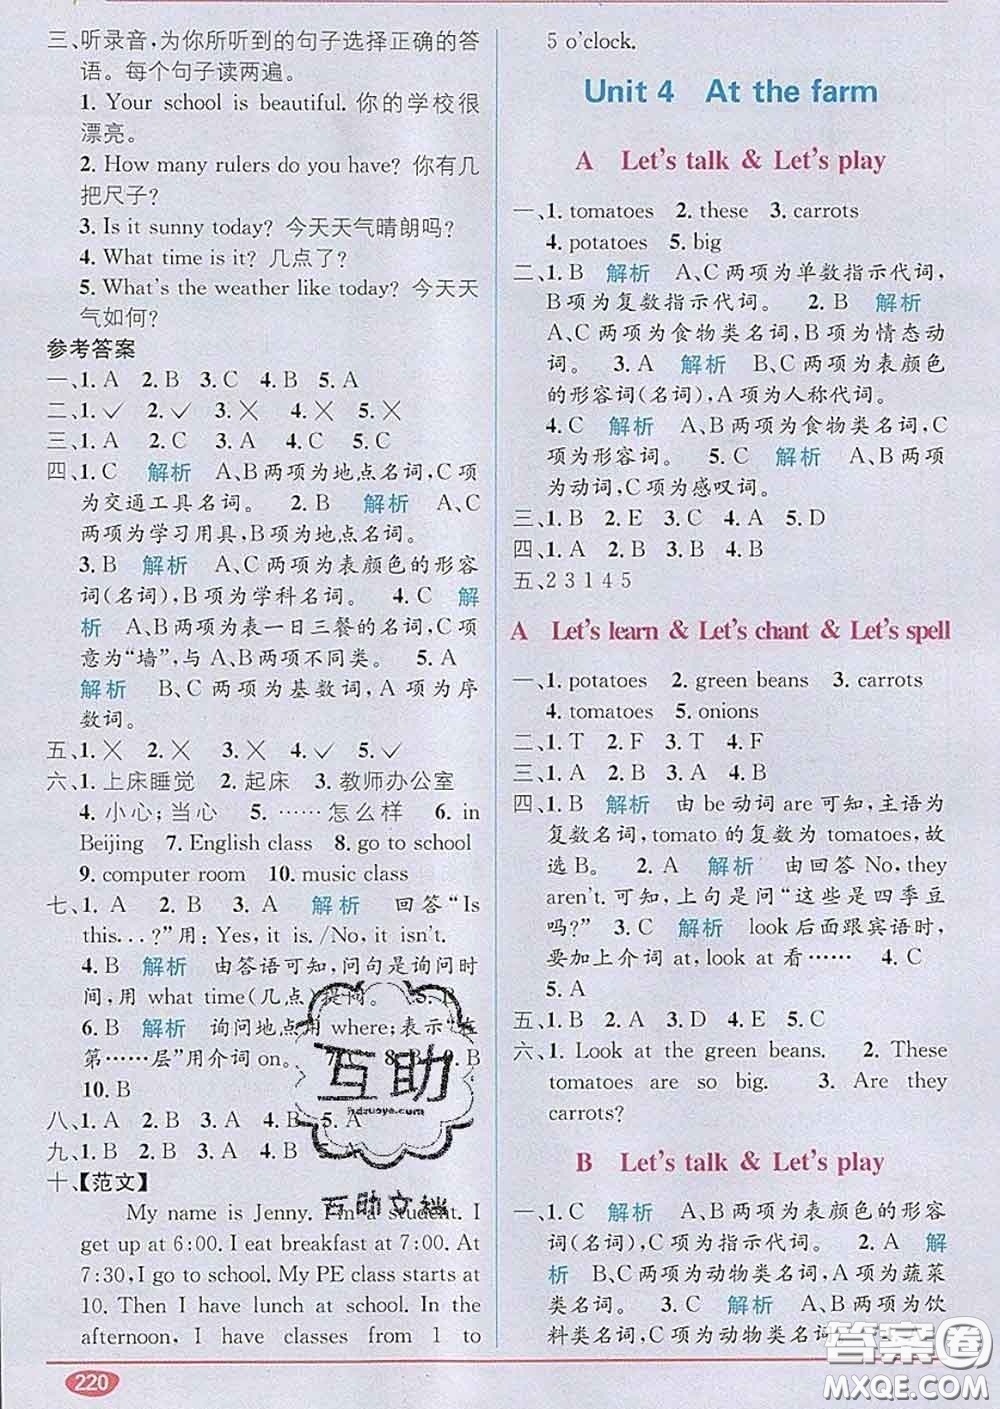 三、听录音,为你所听到的句子选择正确的答
语。每个句子读两遍。
1. Your school is beautiful. 你的学校很
漂亮。
2. How many rulers do you have? 你有几
把尺子?
3. Is it sunny today? 今天天气晴朗吗?
4. What time is it? 几点了?
5. What's the weather like today? 今天天
气如何?
参考答案
一、1. A 2. B 3. C 4. B 5. A
二、1. ✓ 2. ✓ 3. ╳ 4. ╳ 5. ╳
三、1. A 2. C 3. A 4. C 5. C
四、1. C 解析 A、B两项为地点名词,C项
为交通工具名词。 2. B 解析 A、C
两项为学习用具,B项为地点名词。
3. B 解析 A、C两项为表颜色的形容
词(名词),B项为学科名词。 4. C 解
析 A、B两项为表一日三餐的名词,C项
意为“墙”,与A、B两项不同类。 5. A
解析 B、C两项为基数词,A项为序
数词。
五、1. ╳ 2. ╳ 3. ╳ 4. ✓ 5. ✓
六、1. 上床睡觉 2. 起床 3. 教师办公室
4. 小心;当心 5. ……怎么样 6. in
Beijing 7. English class 8. go to school
9. computer room 10. music class
七、1. A 2. B 3. A 解析 回答“Is
this...?”用:Yes, it is. /No, it isn't.
4. B 解析 由答语可知,问句是询问时
间,用 what time(几点)提问。 5. B
6. B 解析 询问地点用 where;表示“在
第……层”用介词on。 7. 8. B 9. B
10. B
八、1. A 2. B 3. A 4. B 5. A
九、1. B 2. B 3. A 4. B 5.
十、【范文】
My name is Jenny. I'm a student. I
get up at 6:00. I eat breakfast at 7:00. At
7:30, I go to school. My PE class starts at
10. Then I have lunch at school. In the
afternoon, I have classes from 1 to
220
5 o'clock.
Unit 4 At the farm
A Let's talk & Let's play
一、1. tomatoes 2. these 3. carrots
4. potatoes 5. big
二、1. B 解析 A、C两项为单数指示代词,
B项为复数指示代词。 2. B 解析
A、C两项为食物类名词,B项为情态动
词。 3. A 解析 B、C两项为表颜色
的形容词(名词),A项为人称代词。
4. C 解析 A、B两项为食物类名词,C
项为形容词。 5. C 解析 A、B两项
为动词,C项为感叹词。
三、1. B 2. E 3. C 4. A 5. D
四、1. A 2. B 3. B 4. B
五、2 3 1 4 5
A Let's learn & Let's chant & Let's spell
一、1. potatoes 2. green beans 3. carrots
4. tomatoes 5. onions
二、1. T 2. F 3. T 4. F
三、1. A 2. A 3. B 4. A 5. B
四、1. B 解析 由be动词are可知,主语为
复数名词,tomato的复数为tomatoes,故
选B。 2. A 解析 由回答No, they
aren't.可知,上句是问“这些是四季豆
吗?” 3. C 解析 look后面跟宾语时,
要加上介词at,look at 看…… 4. C
5. A
五、1. B 2. A 3. D 4. E 5. C
六、1. Look at the green beans. 2. These
tomatoes are so big. 3. Are they
carrots?
B Let's talk & Let's play
一、1. C 解析 A、B两项为表颜色的形容
词(名词),C项为指示代词。 2. A 解
析 B、C两项为动物类名词,A项为蔬菜
类名词。 3. C 解析 A、B两项为饮
料类名词,C项为动物类名词
互助
hdzuoye.com
互助文档
答案圈
MXQE.COM